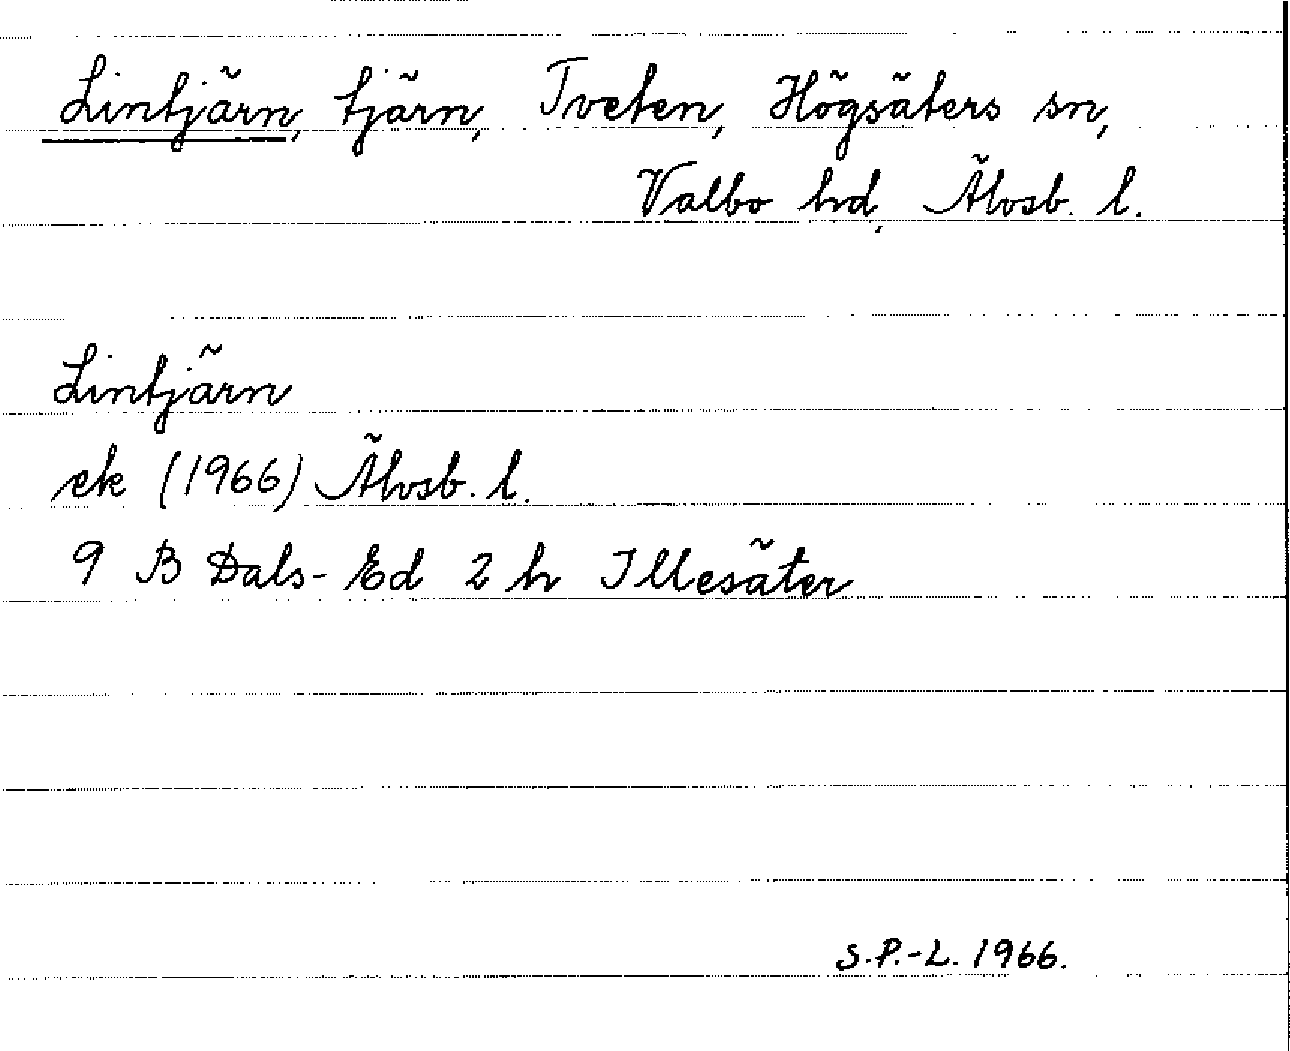 Lintjärn, tjärn, Tveten, Högsäters sn,
Valbo hd, Älvsb. l.
Lintjärn
ek (1966) Älvsb. l.
9 B Dals-Ed 2 h Illesäter
S.P.-L. 1966.